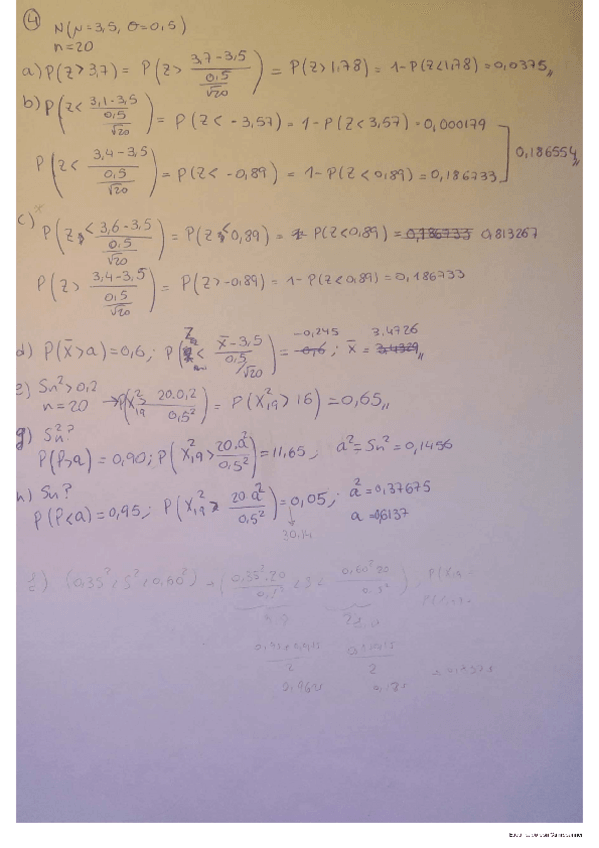 ④ N(μ=3,5, σ=0,5)
n=20
a) P(Z>3,7) = P(Z> (3,7-3,5)/(0,5/√20)) = P(Z>1,78) = 1-P(Z<1,78) = 0,0375
b) P(Z< (3,1-3,5)/(0,5/√20)) = P(Z<-3,57) = 1-P(Z<3,57) = 0,000179
0,186554
P(Z< (3,4-3,5)/(0,5/√20)) = P(Z<-0,89) = 1-P(Z<0,89) = 0,186733
c) P(Z< (3,6-3,5)/(0,5/√20)) = P(Z<0,89) = P(Z<0,89) = 0,186733 0,813267
P(Z> (3,4-3,5)/(0,5/√20)) = P(Z>-0,89) = 1-P(Z<0,89) = 0,186733
d) P(x̄>a) = 0,6; P( < (x̄-3,5)/(0,5/√20)) = -0,6 -0,245; x̄ = 3.4329 3.4726
e) Sn²>0,2
n=20 → P(X²19> 20.0,2/0,5²) = P(X²19>16) = 0,65
g) Sn²?
P(P>a) = 0,90; P(X²19> 20.a²/0,5²) = 11,65; a² = Sn² = 0,1456
h) Sn?
P(P<a) = 0,95; P(X²19> 20.a²/0,5²) = 0,05; a² = 0,37675
a = 0,6137
30,14
f) (0,35²; S²; 0,60²) → (0,35².20/0,5² < 0,60².20/0,5²)
2
2